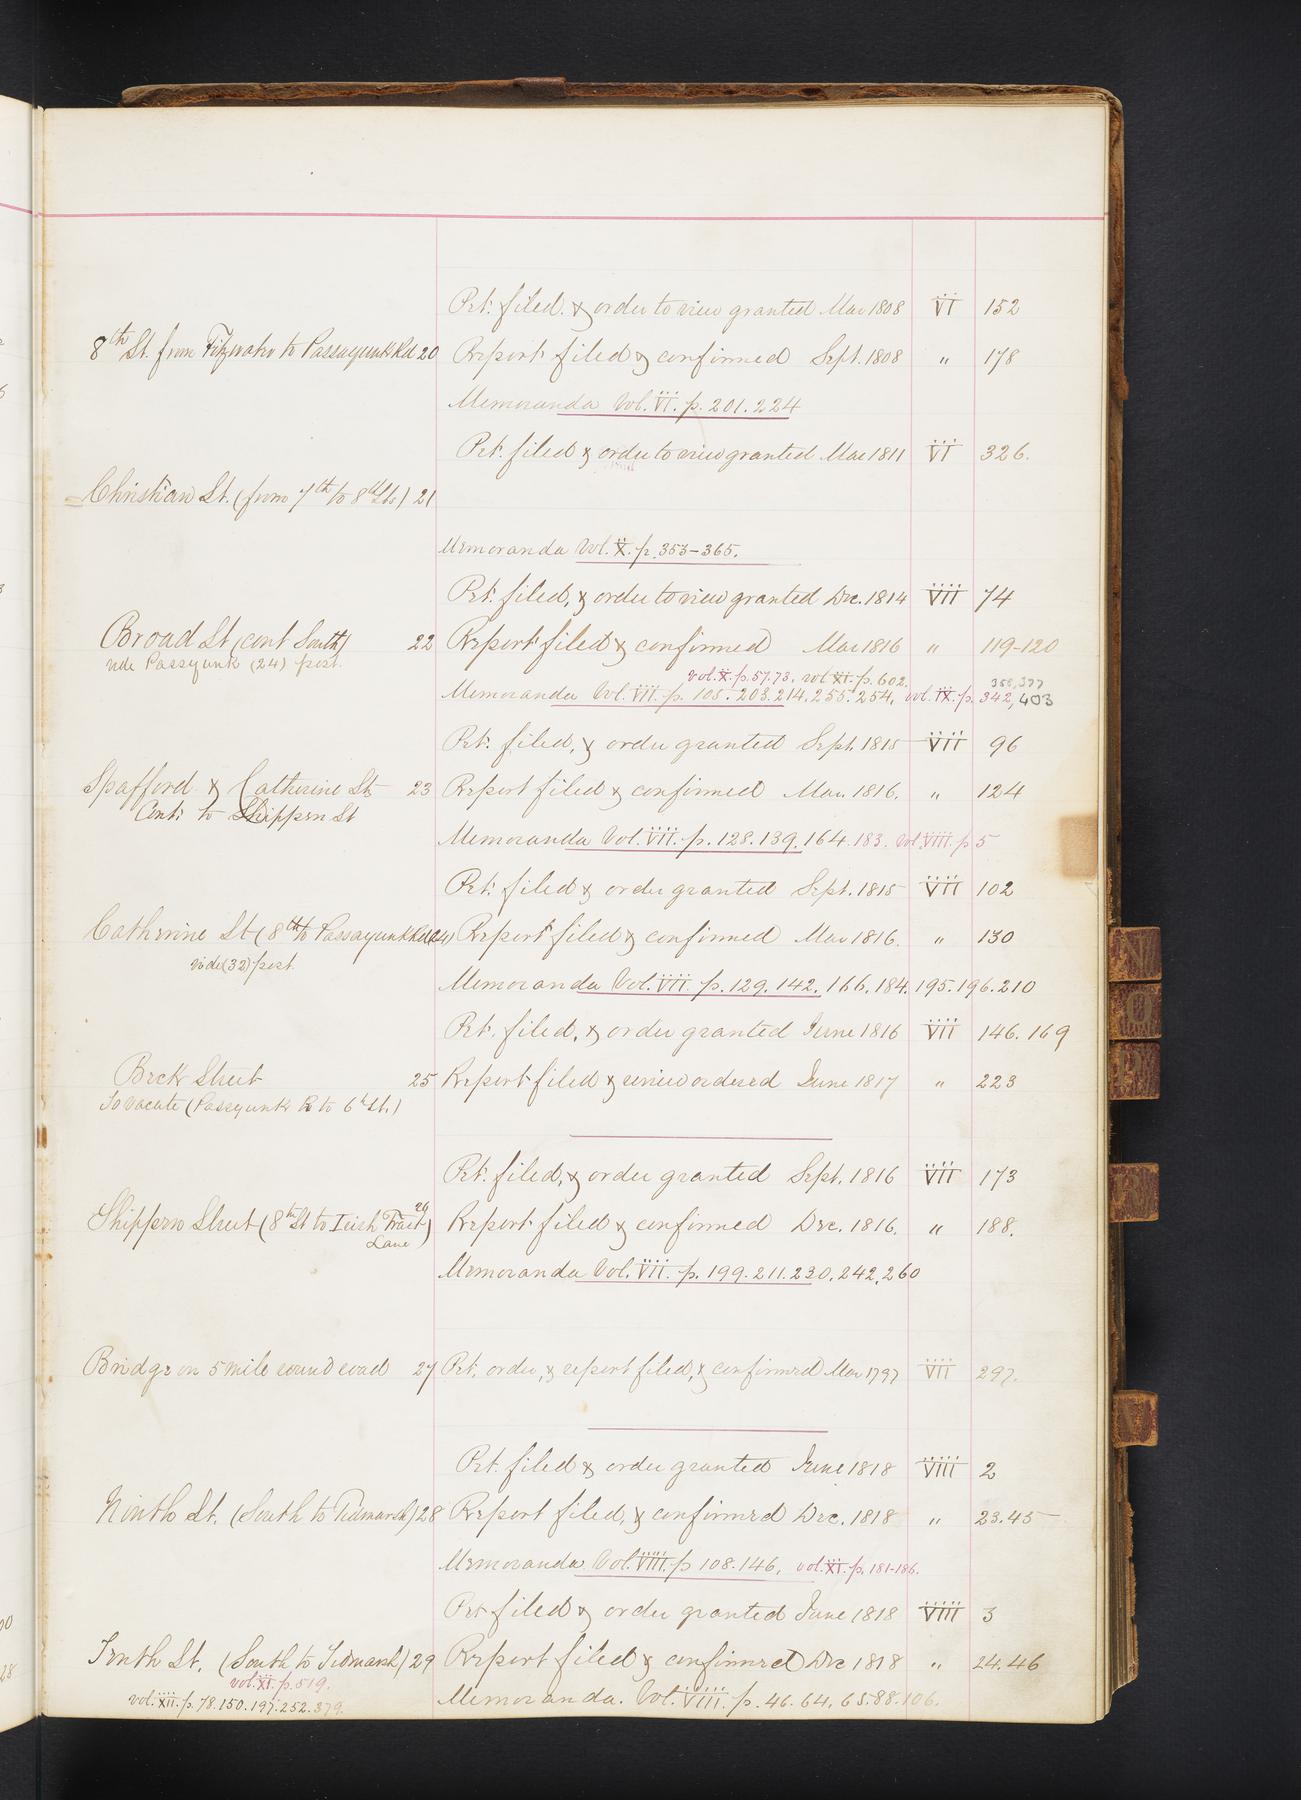 Pet. filed. & order to view granted Mar 1808 VI 152
8th St. from Fitzwater to Passayunk Rd 20 Report filed & confirmed Sept. 1808 " 178
Memoranda Vol. VI. p. 201. 224
Pet. filed & order to view granted Mar 1811 VI 326.
Christian St. (from 7th to 8th Sts) 21
Memoranda Vol. X. p. 353-365.
Pet. filed, & order to view granted Dec. 1814 VII 74
Broad St (cont South) 22 Report filed & confirmed Mar 1816 " 119-120
vide Passyunk (24) post.
vol. X. p. 57.73. vol XI. p. 602. 358,377
Memoranda Vol. VII. p. 105. 203. 214. 255. 254, vol. IX. p. 342, 403
Pet. filed, & order granted Sept. 1815 VII 96
Spafford & Catherine St 23 Report filed & confirmed Mar. 1816. " 124
Cont. to Shippen St
Memoranda Vol. VII. p. 128. 139. 164. 183. Vol. VIII. p 5
Pet. filed & order granted Sept. 1815 VII 102
Catherine St (8th to Passayunk Rd (24) Report filed & confirmed Mar 1816. " 130
vide (32) post.
Memoranda Vol. VII. p. 129. 142. 166. 184. 195. 196. 210
Pet. filed, & order granted June 1816 VII 146. 169
Beck Street 25 Report filed & review ordered June 1817 " 223
To vacate (Passyunk R to 6th St.)
Pet. filed, & order granted Sept. 1816 VII 173
Shippen Street (8th St to Irish Tract 26) Report filed & confirmed Dec. 1816. " 188.
Lane
Memoranda Vol. VII. p. 199. 211. 230. 242. 260
Bridge on 5 mile round road 27 Pet. order, & report filed, & confirmed Mar 1797 VII 297.
Pet. filed & order granted June 1818 VIII 2
Ninth St. (South to Tidmarsh) 28 Report filed, & confirmed Dec. 1818 " 23. 45
Memoranda Vol. VIII. p 108. 146. vol. XI. p. 181-186.
Pet filed & order granted June 1818 VIII 3
Tenth St. (South to Tidmarsh) 29 Report filed & confirmed Dec 1818 " 24. 46
vol. XI. p. 519.
vol. XII. p. 78. 150. 197. 252. 379. Memoranda. Vol. VIII. p. 46. 64. 65. 88. 106.